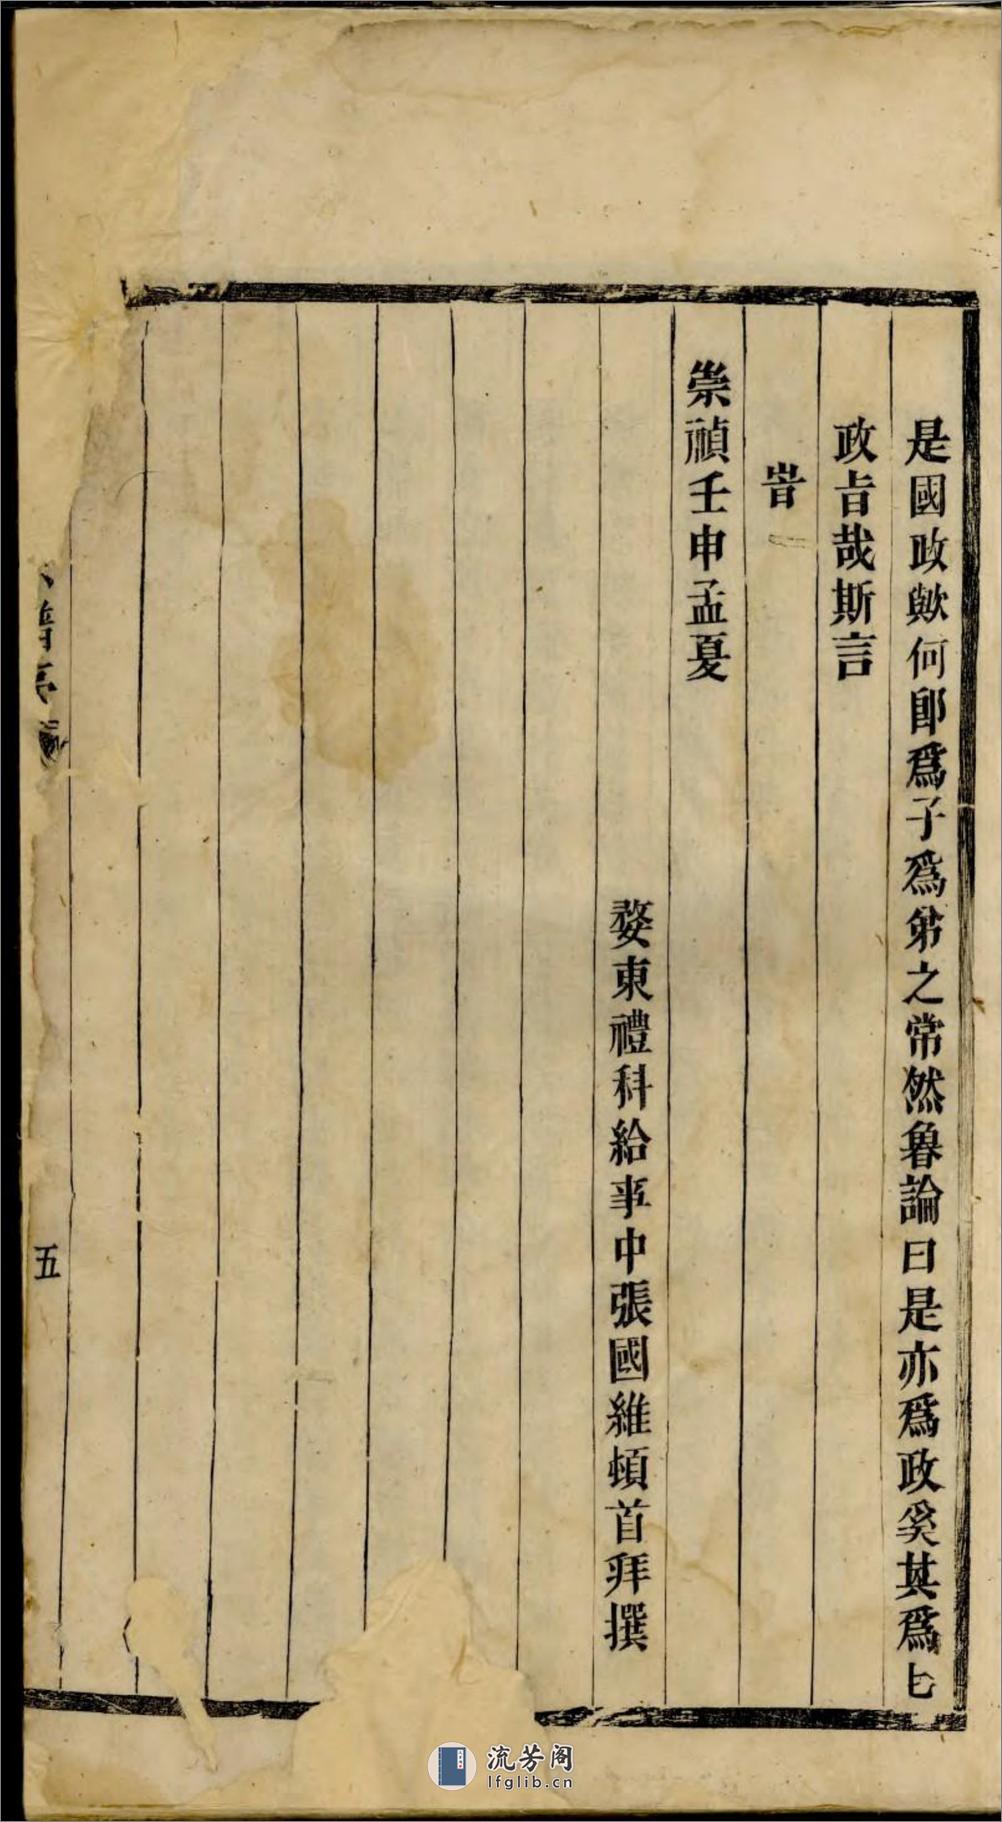 是國政歟何卽爲子爲弟之常然魯論曰是亦爲政奚其爲
政旨哉斯言
旹
崇禎壬申孟夏
婺東禮科給事中張國維頓首拜撰
譜
五
流芳阁
lfglib.cn